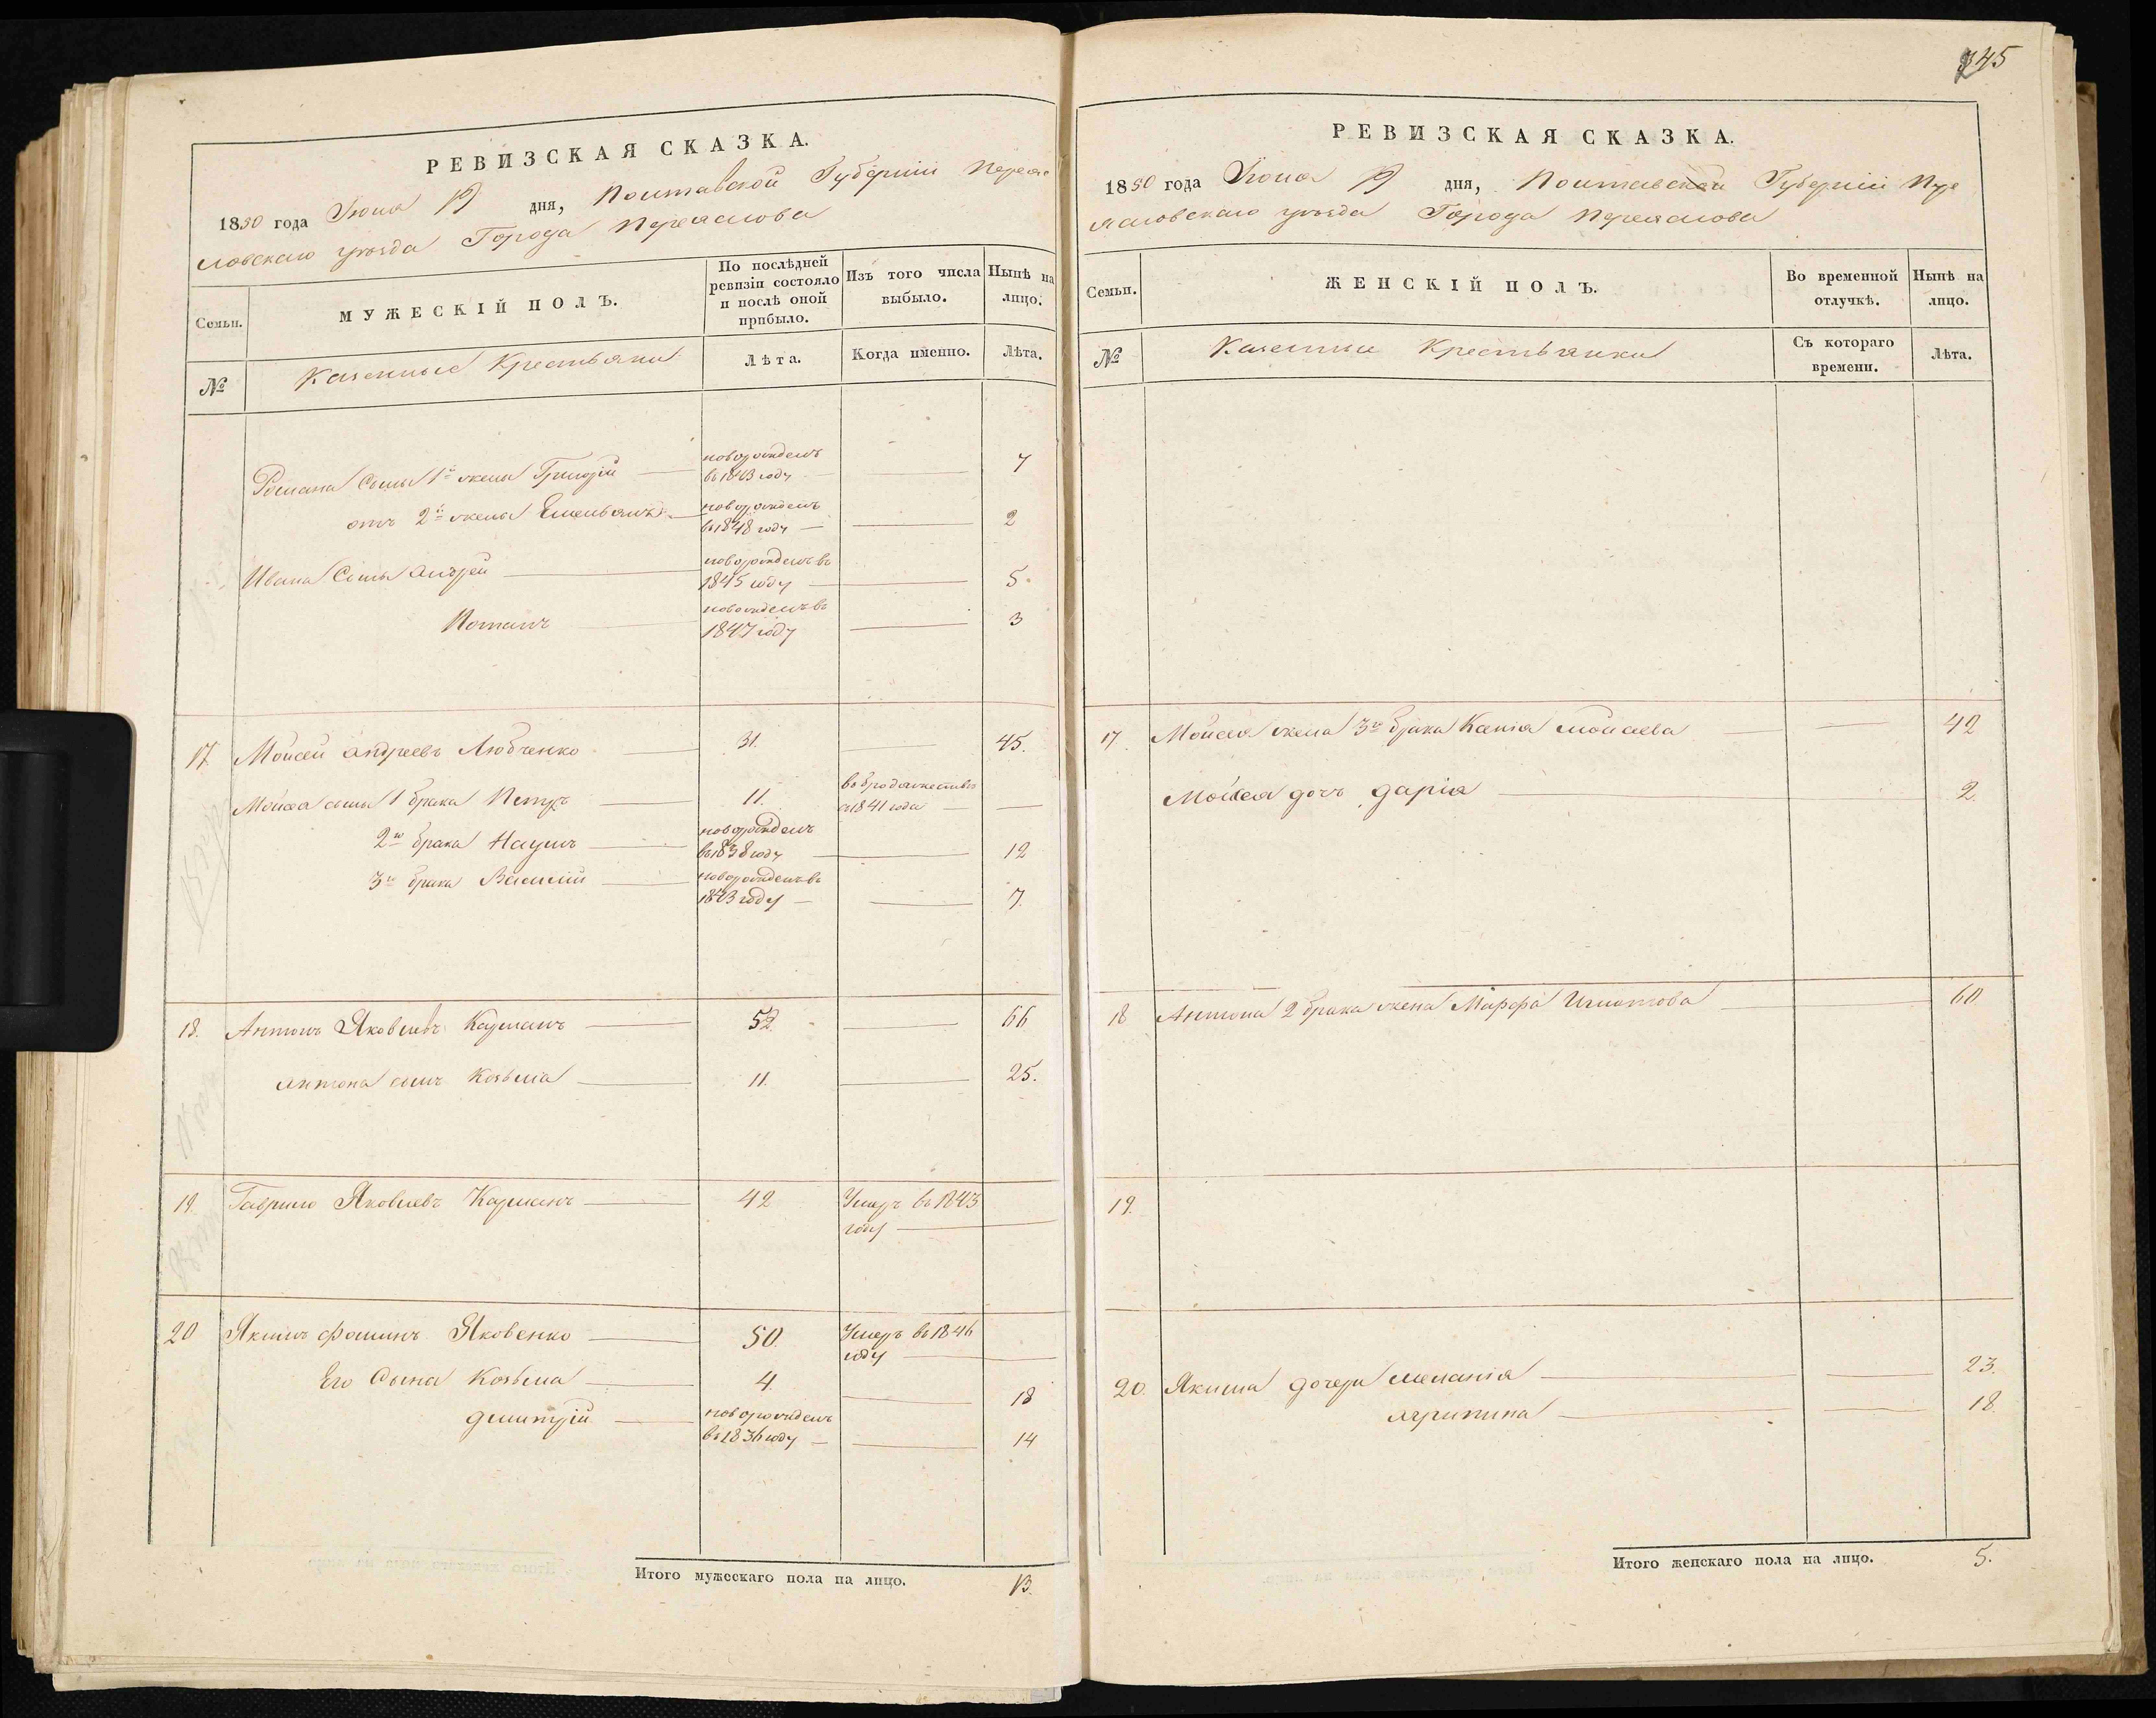 РЕВИЗСКАЯ СКАЗКА.
1850 года Июня 19 дня, Полтавской Губерніи Переяс
ловскаго уезда Города Переяслова
Семьи.
МУЖЕСКІЙ ПОЛЪ.
По послѣдней
ревизіи состояло
и послѣ оной
прибыло.
Изъ того числа
выбыло.
Нынѣ на
лицо.
№
Казенные Крестьяне
Лѣта.
Когда именно.
Лѣта.
Романа сыны 1й жены Григорій новорожденъ
въ 1843 году 7
отъ 2й жены Емельянъ новорожденъ
въ 1848 году 2
Ивана Сыны Андрей новорожденъ въ
1845 году 5
Потапъ новорожденъ въ
1847 году 3
17. Мойсей Андреевъ Любченко 31. 45.
Мойсея сыны 1 брака Петръ 11. въ бродяжествѣ
съ 1841 года
2го брака Наумъ новорожденъ
въ 1838 году 12
3го брака Василій новорожденъ въ
1843 году 7.
18. Антонъ Яковлевъ Кауманъ 52. 66
Антона сынъ Козьма 11. 25.
19. Гаврило Яковлевъ 42 Умеръ въ 1843
году
20 Якимъ Фоминъ Яковенко 50. Умеръ въ 1846
году
Его Сына Козьма 4. 18
Дмитрій новорожденъ
въ 1836 году 14
Итого мужескаго пола на лицо. 13.
745
РЕВИЗСКАЯ СКАЗКА.
1850 года Июня 19 дня, Полтавской Губерніи Пере
ясловскаго уезда Города Переяслова
Семьи.
ЖЕНСКІЙ ПОЛЪ.
Во временной
отлучкѣ.
Нынѣ на
лицо.
№
Казенные Крестьянки
Съ котораго
времени.
Лѣта.
17. Мойсея жена 3го брака Ксенія Мойсеева 42
Мойсея дочь Дарія 2.
18 Антона 2 брака жена Марфа Игнатова 60.
19.
20. Якима дочери Меланія 23.
Агрипина 18.
Итого женскаго пола на лицо. 5.